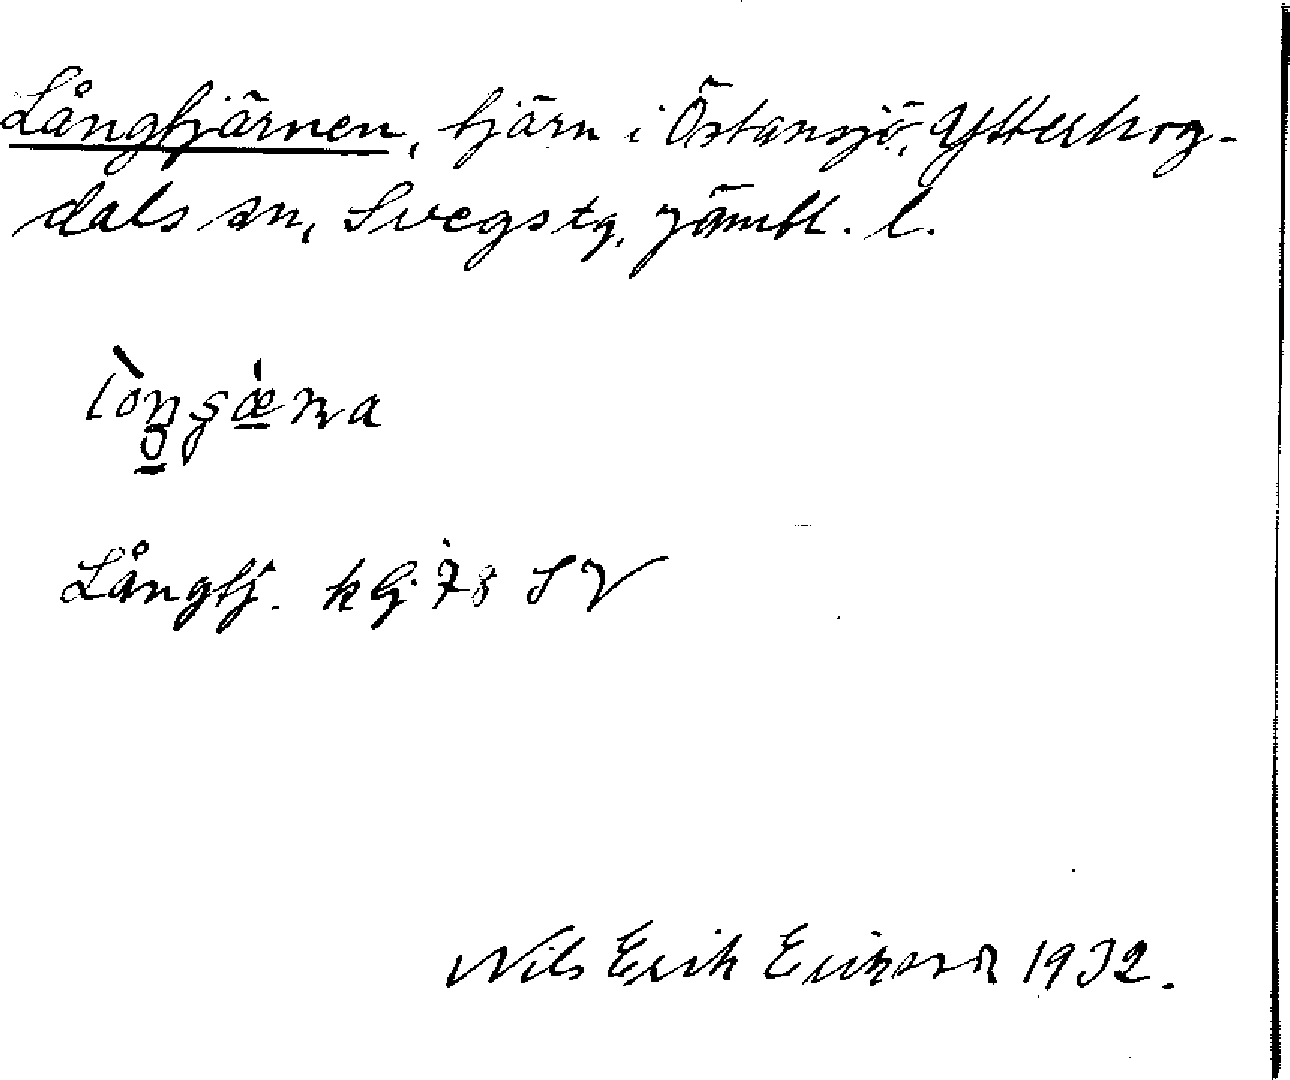 Långtjärnen, tjärn i Östansjö, Ytterhog-
dals sn, Svegs tg, Jämtl. l.
Långtj. kbj 78 SV
Nils Erik Eriksson 1932.